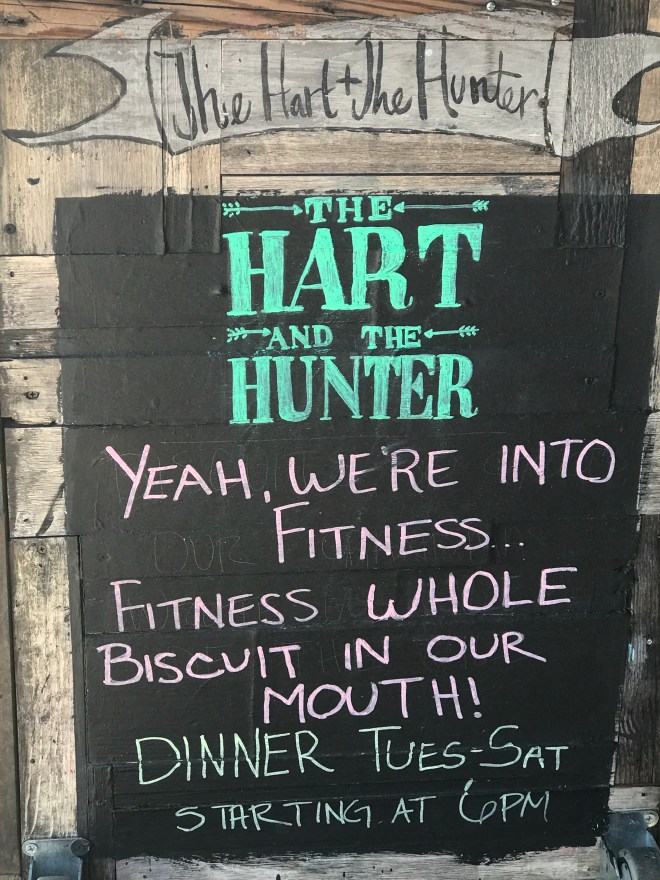 The Hart + The Hunter
THE
HART
AND THE
HUNTER
YEAH, WE'RE INTO
FITNESS...
FITNESS WHOLE
BISCUIT IN OUR
MOUTH!
DINNER TUES-SAT
STARTING AT 6PM